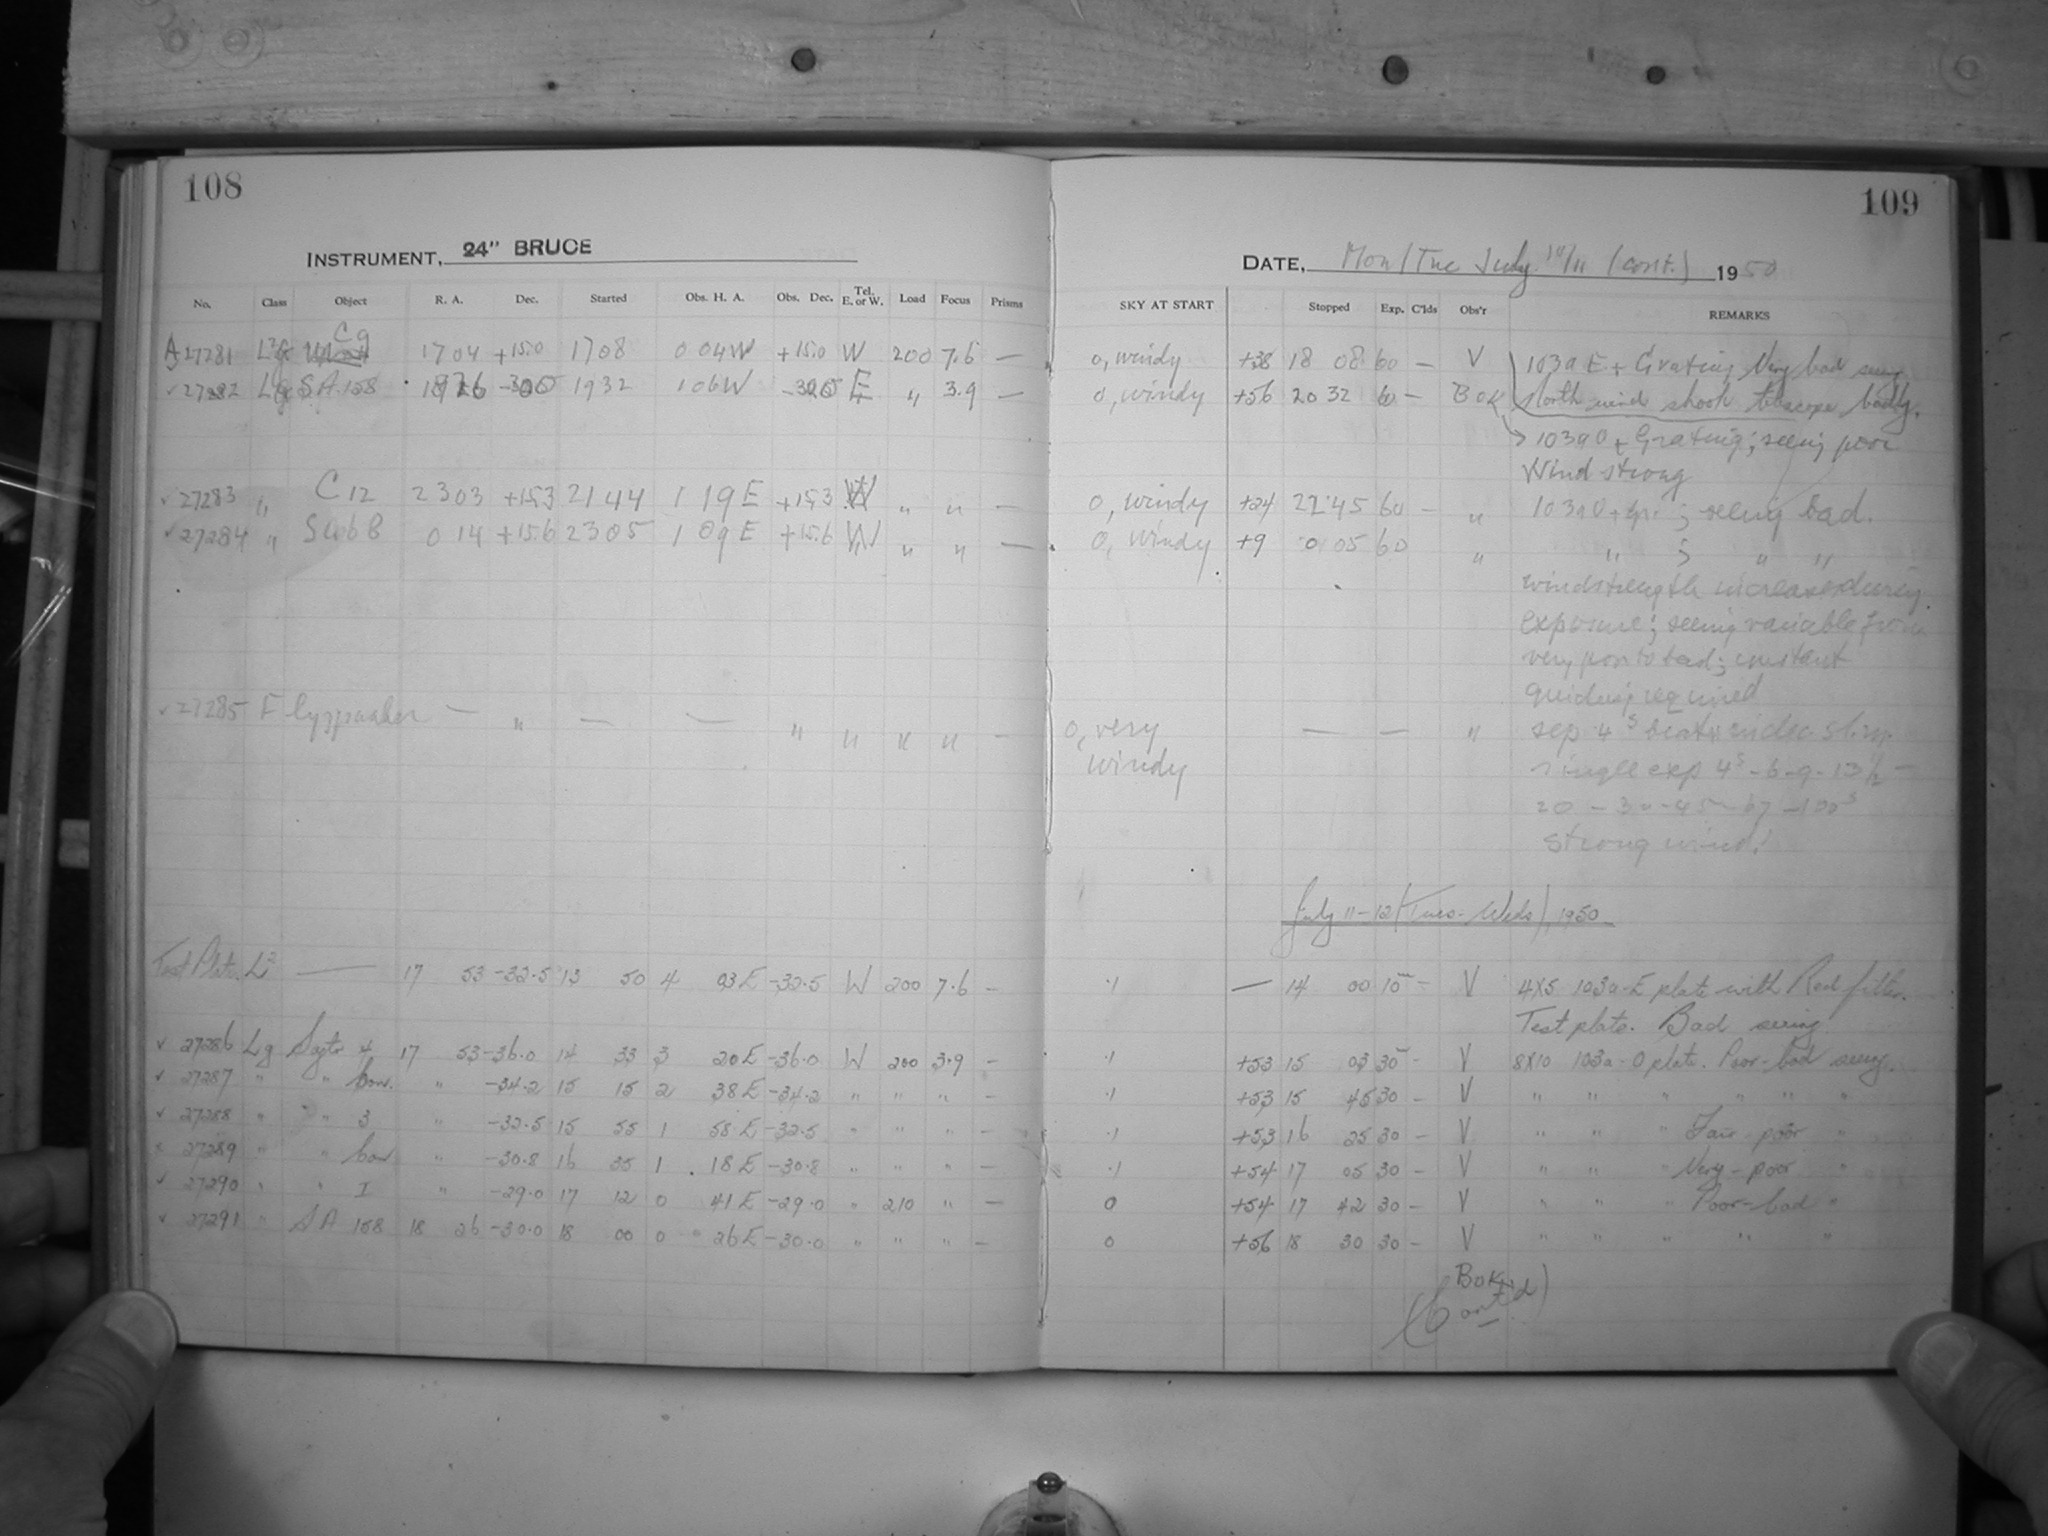 108
INSTRUMENT, 24" BRUCE
No. Class Object R. A. Dec. Started Obs. H. A. Obs. Dec. Tel. E. or W. Load Focus Prisms
A 27281 C9 17 04 +15.0 17 08 0 04W +15.0 W 200 7.6 —
✓ 27282 Lg SA 158 1932 1 06W E " 3.9 —
✓ 27283 " C12 23 03 +15.3 21 44 1 19 E +15.3 W " " —
✓ 27284 " 0 14 +15.6 23 05 1 09 E +15.6 W " " —
✓ 27285 F — " — — " " " " —
Test Plate L2 — 17 53 -32.5 13 50 4 03 E -32.5 W 200 7.6 —
✓ 27286 Lg Sgtr 4 17 53 -36.0 14 33 3 20 E -36.0 W 200 3.9 —
✓ 27287 " " " -34.2 15 15 2 38 E -34.2 " " " —
✓ 27288 " " 3 " -32.5 15 55 1 58 E -32.5 " " " —
✓ 27289 " " " -30.8 16 35 1 18 E -30.8 " " " —
✓ 27290 " " I " -29.0 17 12 0 41 E -29.0 " 210 " —
✓ 27291 " SA 158 18 26 -30.0 18 00 0 26 E -30.0 " " " —
109
DATE, Mon/Tue July 10/11 (cont.) 1950
SKY AT START Stopped Exp. C'lds Obs'r REMARKS
0, windy +38 18 08 60 — V 103a E + Grating Very bad seeing
0, windy +56 20 32 60 — BOK North wind shook telescope badly.
103a O + Grating; seeing poor
Wind strong
0, windy +24 22 45 60 — " 103a O + gr. ; seeing bad.
0, windy +9 0 05 60 " " ; " "
windstrength increased during
exposure; seeing variable from
very poor to bad; constant
guiding required
0, very — — " sep 4s
windy single exp 4s - 6 - 9 - 13½ -
20 - 30 - 45 - 67 - 100s
strong wind!
July 11-12 (Tues-Weds), 1950
.1 — 14 00 10m — V 4x5 103a-E plate with Red filter.
Test plate. Bad seeing
.1 +53 15 03 30m — V 8x10 103a-O plate. Poor-bad seeing.
.1 +53 15 45 30 — V " " " " " "
.1 +53 16 25 30 — V " " " Fair-poor "
.1 +54 17 05 30 — V " " " Very-poor "
0 +54 17 42 30 — V " " " Poor-bad "
0 +56 18 30 30 — V " " " " "
BOK
(Cont'd)